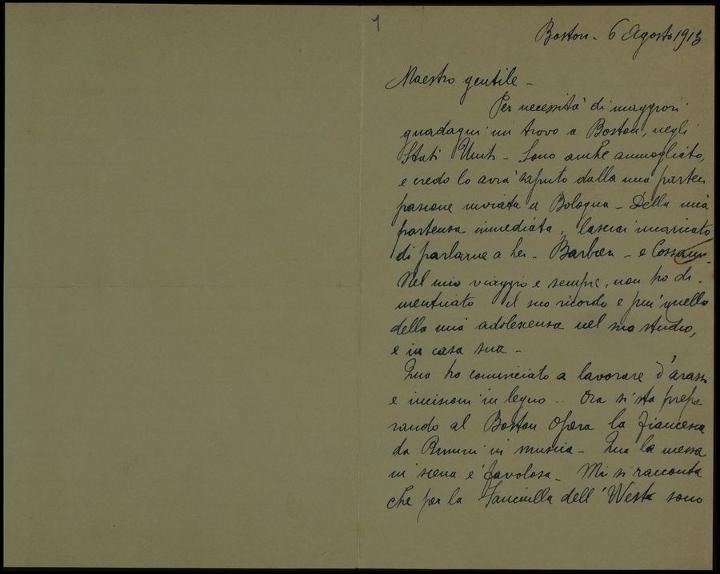 1
Boston - 6 Agosto 1913
Maestro gentile -
Per necessità di maggiori
guadagni mi trovo a Boston, negli
Stati Uniti - Sono anche ammogliato,
e credo lo avrà saputo dalla mia parteci
pazione inviata a Bologna - Della mia
partenza immediata, lasciai incaricato
di parlarne a Lei - Barbieri - e
Nel mio viaggio e sempre, non ho di-
menticato il suo ricordo e più quello
della mia adolescenza nel suo studio,
e in casa sua -
Qua ho cominciato a lavorare d'arazzi
e incisioni in legno - Ora si sta prepa
rando al Boston Opera la Francesca
da Rimini in musica - Qua la messa
in scena è favolosa - Mi si racconta
che per la Fanciulla dell' West sono